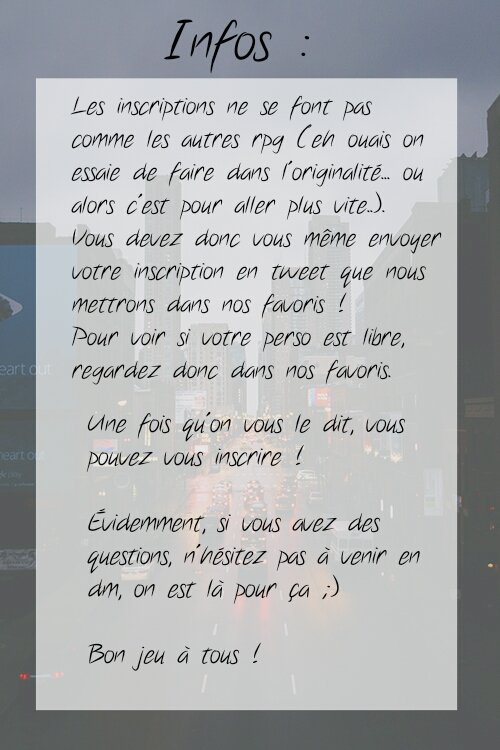 Infos :
Les inscriptions ne se font pas
comme les autres rpg (eh ouais on
essaie de faire dans l'originalité... ou
alors c'est pour aller plus vite..).
Vous devez donc vous même envoyer
votre inscription en tweet que nous
mettrons dans nos favoris !
Pour voir si votre perso est libre,
regardez donc dans nos favoris.
Une fois qu'on vous le dit, vous
pouvez vous inscrire !
Évidemment, si vous avez des
questions, n'hésitez pas à venir en
dm, on est là pour ça ;)
Bon jeu à tous !
eart out
eart out